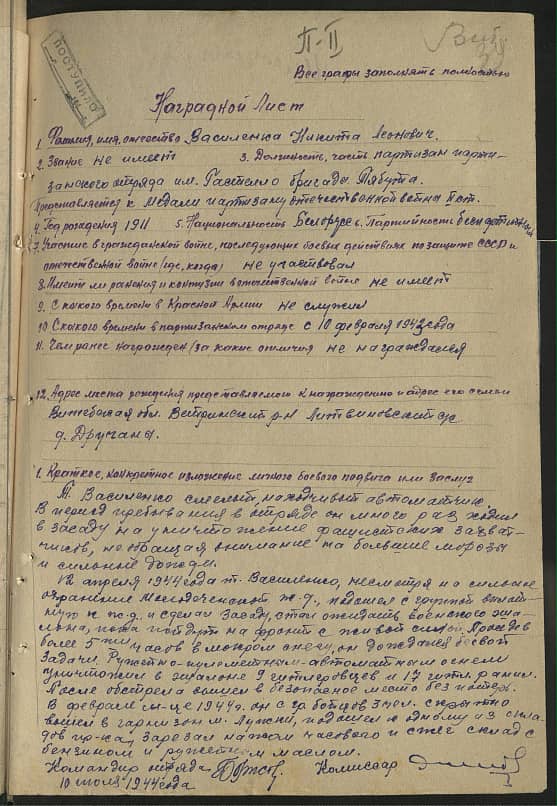 ПОСТУПИЛО
П-II
Все графы заполнять полностью
Наградной Лист
1. Фамилия, имя, отчество Василенка Никита Леонович.
2. Звание не имеет 3. Должность, часть партизан парти-
занского отряда им. Гастелло бригада Лябута.
Представляется к Медали партизану отечественной войны II ст.
4. Год рождения 1911 5. Национальность Белорус 6. Партийность беспартийный
7. Участие в гражданской войне, последующих боевых действиях по защите СССР и
отечественной войне (где, когда) не участвовал
8. Имеет ли ранения и контузии в отечественной войне не имеет
9. С какого времени в Красной Армии не служил
10 С какого времени в партизанском отряде с 10 февраля 1943 года
11. Чем ранее награжден /за какие отличия не награждался
12. Адрес места рождения представляемого к награждению и адрес его семьи
Витебская обл. Ветринский р-н Литвиновский с/с
д. Другана.
1. Краткое, конкретное изложение личного боевого подвига или заслуг
Т. Василенко смелый, находчивый автоматчик.
В период пребывания в отряде он много раз ходил
в засаду на уничтожение фашистских захват-
чиков, не обращая внимание на большие морозы
и сильные дожди.
12 апреля 1944 года т. Василенко, несмотря на сильное
охранение Молодеченской ж.д., подошел с группой
к ж.д. и сделал засаду, стал ожидать воинского эше-
лона, пойдут на фронт с живой силой. Прождав
более 5 часов в мокром снегу, он дождался боевой
задачи. Ружейно-пулеметным-автоматным огнем
уничтожил в эшелоне 9 гитлеровцев и 17 гитл. ранил.
После обстрела вышел в безопасное место без потерь.
В феврале м-це 1944 г. он с гр. бойцов 3 чел. скрытно
вошел в гарнизон м. Лужки, подошел к одному из скла-
дов пр-ка, зарезал ножом часового и сжег склад с
бензином и ружейным маслом.
Командир отряда Комиссар
10 июля 1944 года